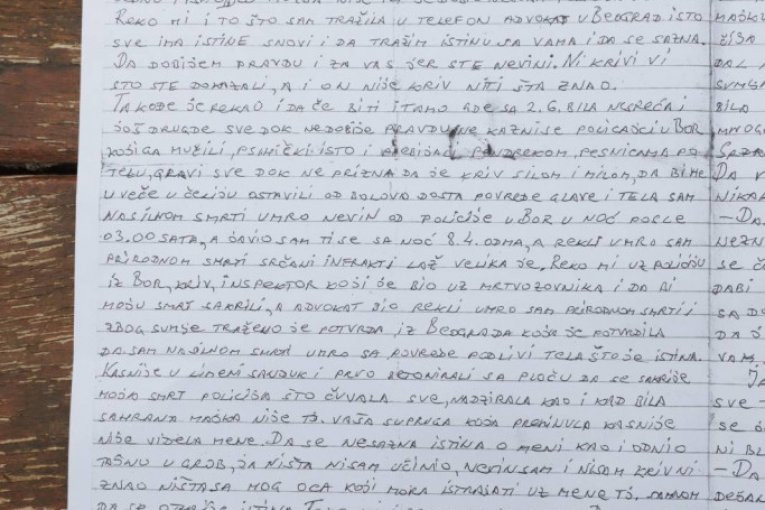 REKO MI I TO ŠTO SAM TRAŽILA U TELEFON ADVOKAT U BEOGRAD ISTO
SVE IMA ISTINE SNOVI I DA TRAŽIM ISTINU SA VAMA I DA SE SAZNA.
DA DOBIJEM PRAVDU I ZA VAS JER STE NEVINI. NI KRIVI VI
ŠTO STE DOKAZALI, A I ON NIJE KRIV NITI ŠTA ZNAO.
TAKOĐE JE REKAO I DA ĆE BITI I TAMO GDE SA 2.6. BILA NESREĆA I
JOŠ DRUGDE SVE DOK NEDOBIJE PRAVDU NE KAZNI SE POLICAJCI U BOR
KOJI GA MUČILI, PSIHIČKI ISTO I PREBIJALI PENDREKOM, PESNICAMA PO
TELU, GLAVI SVE DOK NE PRIZNA DA JE KRIV SILOM I MILOM, DA BI ME
U VEČE U ĆELIJU OSTAVILI OD BOLOVA DOSTA POVREDE GLAVE I TELA SAM
NASILNOM SMRTI UMRO NEVIN OD POLICIJE U BOR U NOĆ POSLE
03.00 SATA, A JAVIO SAM TI SE SA NOĆ 8.4. ODMA, A REKLI UMRO SAM
PRIRODNOM SMRTI SRČANI INFRAKTI LAŽ VELIKA JE. REKO MI UZ POLICIJU
IZ BOR, KRIV, INSPEKTOR KOJI JE BIO UZ MRTVOZOVNIKA I DA BI
MOJU SMRT SAKRILI, A ADVOKAT BIO REKLI UMRO SAM PRIRODNOM SMRTI I
ZBOG SUMJE TRAŽENO JE POTVRDA, IZ BEOGRADA KOJA JE POTVRDILA
DA SAM NASILNOM SMRTI UMRO SA POVREDE PODLIVI TELA ŠTO JE ISTINA.
KASNIJE U LIMENI SANDUK I PRVO BETONIRALI SA PLOČU DA SE SAKRIJE
MOJA SMRT POLICIJA ŠTO ČUVALA SVE, NADZIRALA KAO I KAD BILA
SAHRANA MAJKA NIJE TJ. VAŠA SUPRUGA KOJA PREMINULA KASNIJE
NIJE VIDELA MENE. DA SE NESAZNA ISTINA O MENI KAO I ODNIO
TAJNU U GROB, JA NIŠTA NISAM UČINIO, NEVIN SAM I NISAM KRIV NI
ZNAO NIŠTA SA MOG OCA KOJI MORA ISTRAJATI UZ MENE TJ.
DA SE OTKRIJE ISTINA
MAJKU
DAL
BILA
MNOGO
DA V
NIKA
– DA
NEZN
SE Č
DA BI
SA DO
DA O
VAM.
SVE –
SE O
NI BL
– DA